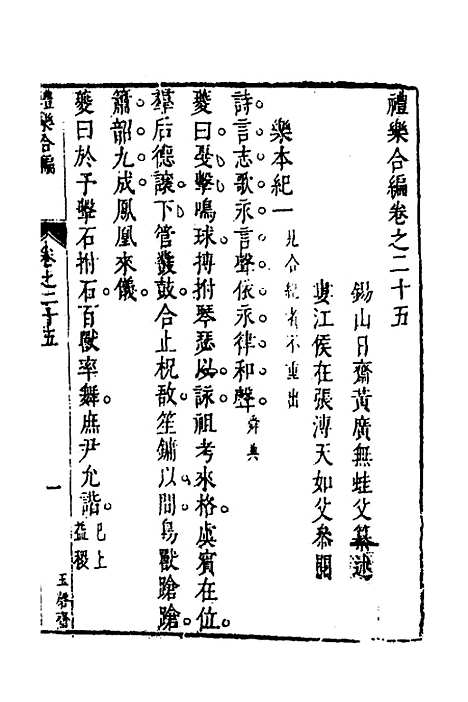 禮樂合編卷之二十五
錫山日齋黃廣無蛙父纂述
婁江侯在張溥天如父叅閱
樂本紀一 見合紀者不重出
詩言志歌永言聲依永律和聲。舜典
夔曰戛擊鳴球搏拊琴瑟以詠祖考來格。虞賓在位。
羣后德讓。下管鼗鼓。合止柷敔。笙鏞以間。鳥獸蹌蹌。
簫韶九成。鳳凰來儀。
夔曰於予擊石拊石百獸率舞。庶尹允諧。已上益稷
禮樂合編
卷之二十五
一
玉磬齋